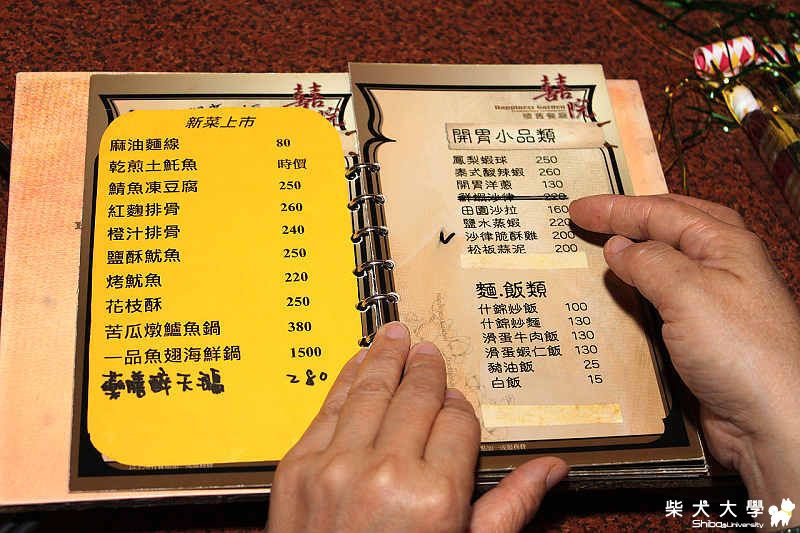 新菜上市
麻油麵線 80
乾煎土魠魚 時價
鯖魚凍豆腐 250
紅麴排骨 260
橙汁排骨 240
鹽酥魷魚 250
烤魷魚 220
花枝酥 250
苦瓜燉鱸魚鍋 380
一品魚翅海鮮鍋 1500
囍
Happiness Garden
懷舊餐廳
開胃小品類
鳳梨蝦球 250
泰式酸辣蝦 260
開胃洋蔥 130
鮮蝦沙律 220
田園沙拉 160
鹽水蒸蝦 220
沙律脆酥雞 200
松板蒜泥 200
麵.飯類
什錦炒飯 100
什錦炒麵 130
滑蛋牛肉飯 130
滑蛋蝦仁飯 130
豬油飯 25
白飯 15
柴犬大學
Shiba University